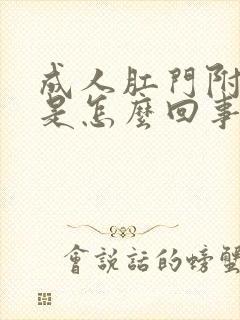 成人肛門附
是怎麼回事
會說話的螃蟹